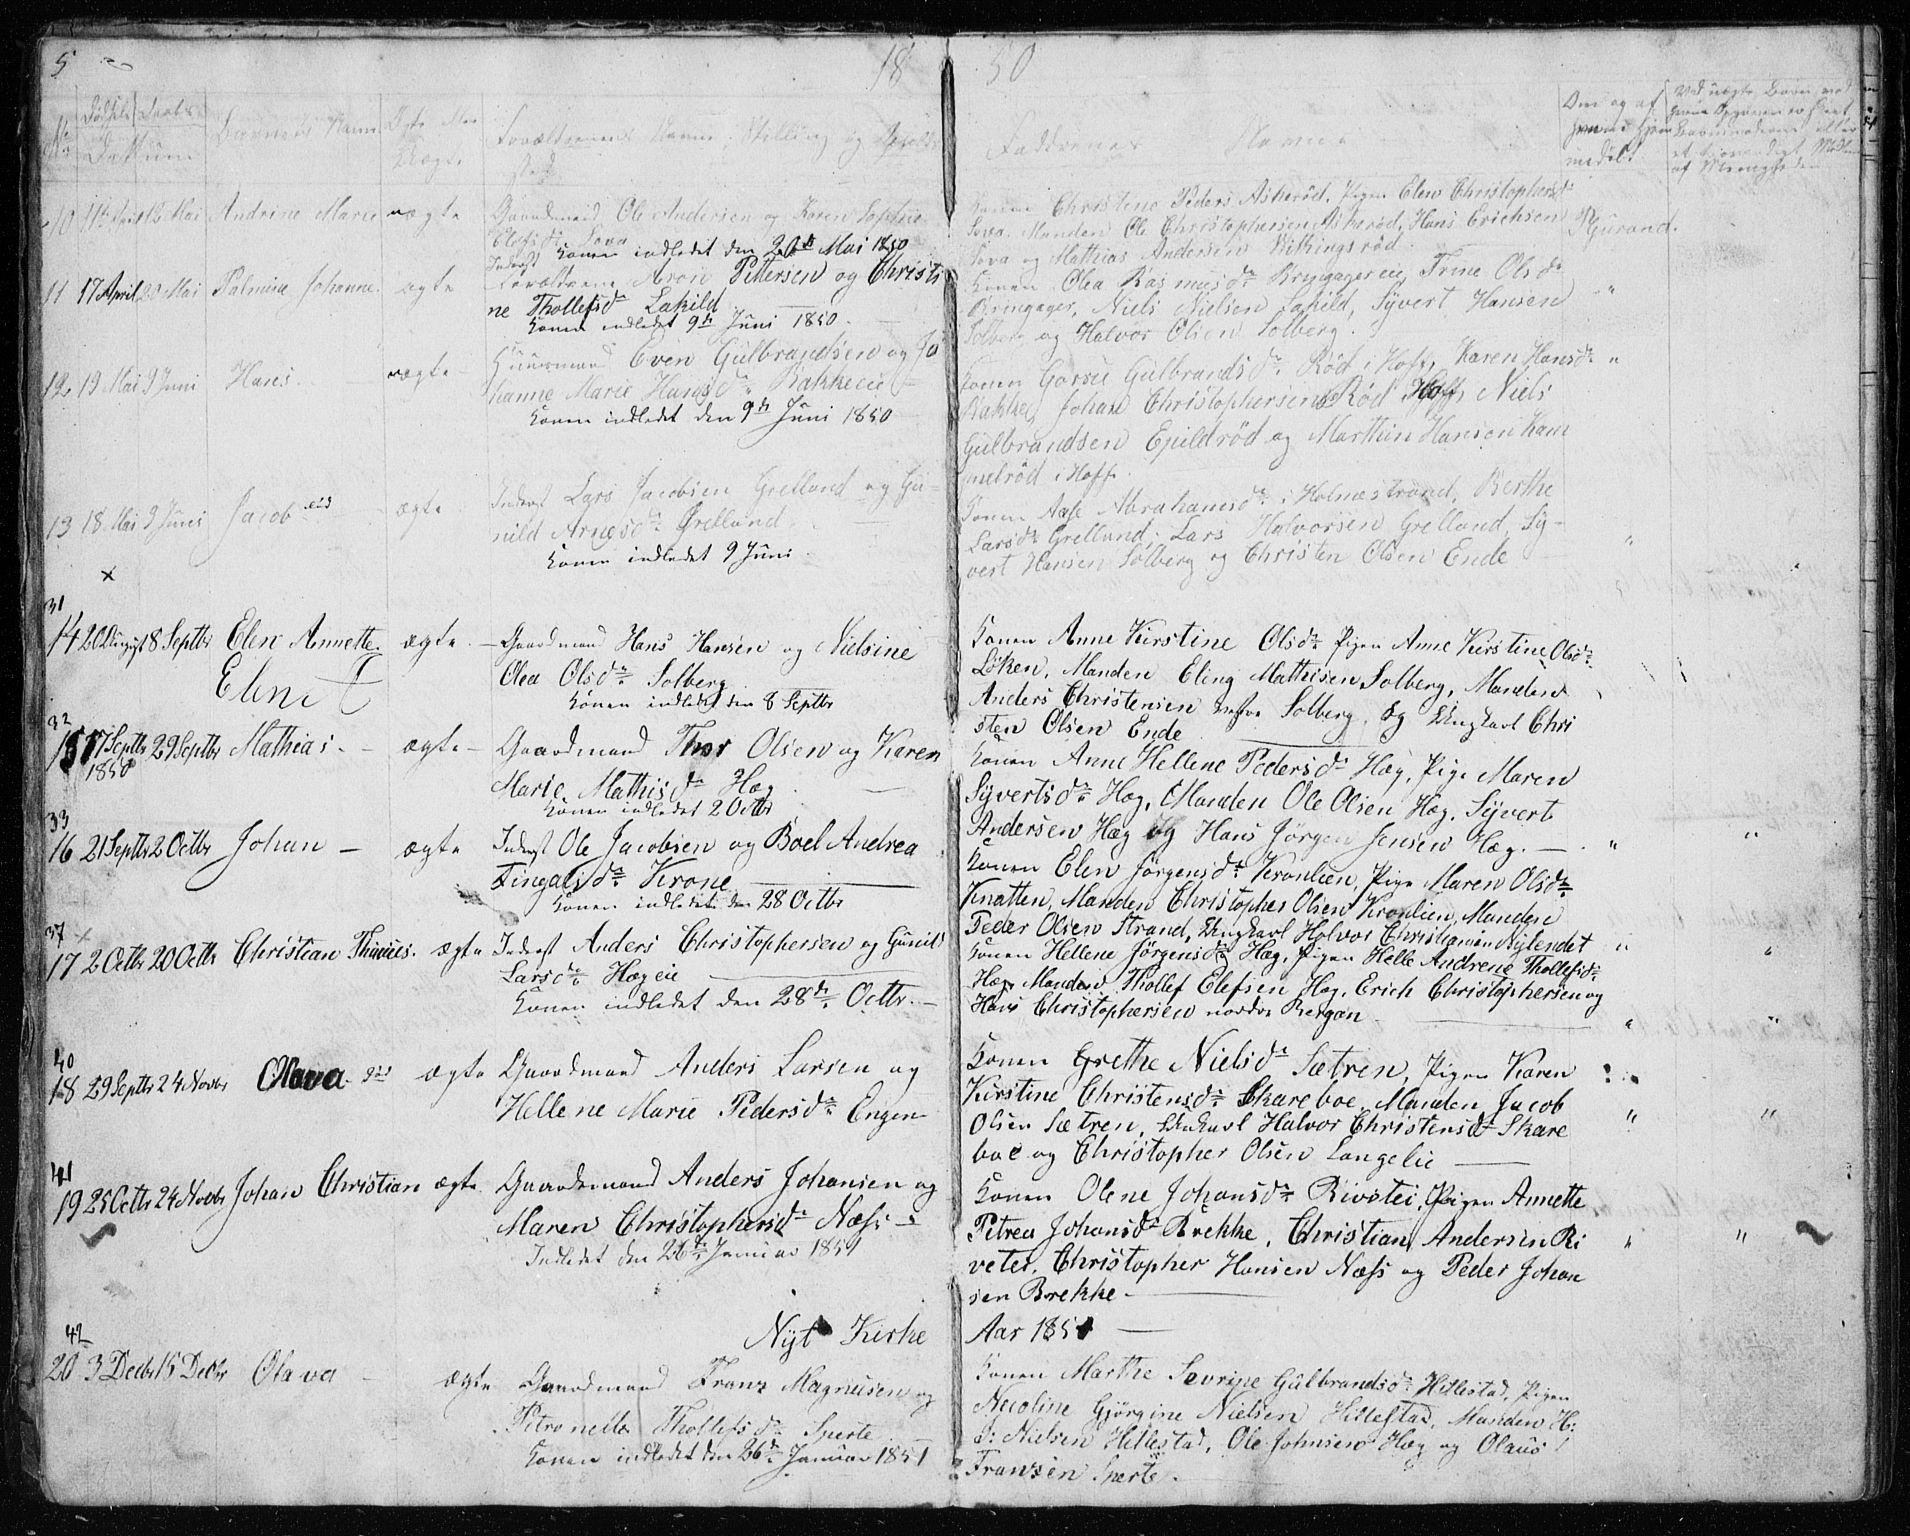 5 18 50
No Fødsels Daabs Datum Barnets Navn Ægte eller Uægte Forældrenes Navne, Stilling og
Faddrenes Navne
10 11te April 12 Mai Andrine Marie ægte Gaardmand Ole Andersen og Karen Sophie
Sova
Konen indledet den 20de Mai 1850
Konen Christine Peders Askerød, Pigen Elen Christophersdr
Sova. Manden Ole Christophersen Askerød, Hans Erichsen
Sova og Mathias Andersen Wikingsrød.
11 17 April 20 Mai Palmine Johanne ægte Forældrene Aron Pettersen og Christi
ne Thollefsdr Lakild
Konen indledet 9de Juni 1850
Konen Olea Rasmusdr Bringagereie, Trine Olsdr
Bringager, Niels Nielsen Lakild, Syvert Hansen
Solberg og Halvor Olsen Solberg.
12 19 Mai 9 Juni Hans ægte Huusmand Even Gulbrandsen og Jo
hanne Marie Hansdr Bakkeeie
Konen indledet den 9de Juni 1850
Konen Gorsee Gulbrandsdr Rød i Hoff, Karen Hansdr
Bakke, Johan Christophersen Rød i Hoff, Niels
Gulbrandsen Ejuildrød og Marthin Hansen Kam
melrød i Hoff.
13 18 Mai 9 Juni Jacob ægte Inderst Lars Jacobsen Grelland og Gu-
nild Arnesdr Grelland
Konen indledet 9 Juni
Konen Aase Abrahamsdr i Holmestrand, Berthe
Larsdr Grelland, Lars Halvorsen Grelland, Sy-
vert Hansen Solberg og Christen Olsen Ende
31
14 20 August 8 Septbr Elen Annette ægte Gaardmand Hans Hansen og Nielsine
Elen Olea Olsdr Solberg
Konen indledet den 8 Septbr
Konen Anne Kirstine Olsdr Pigen Anne Kirstine Olsdr
Løken, Manden Eling Mathisen Solberg, Manden
Anders Christensen Solberg, og Ungkarl Chri
sten Olsen Ende
32
15 17 Septbr 29 Septbr Mathias ægte Gaardmand Thor Olsen og Karen
1850 Marie Mathisdr Hæg
Konen indledet 2 Octbr
Konen Anne Hellene Pedersdr Hæg, Pige Maren
Syvertsdr Hæg, Manden Ole Olsen Hæg, Syvert
Andersen Hæg og Hans Jørgen Jensen Hæg.
33
16 21 Septbr 2 Octbr Johan ægte Inderst Ole Jacobsen og Boel Andrea
Fingalsdr Krone
Konen indledet den 28 Octbr
Konen Elen Jørgensdr Kronlien, Pige Maren Olsdr
Knatten, Manden Christopher Olsen Kronlien, Manden
Peder Olsen Strand, Ungkarl Halvor Christiansen Nylendet
37
17 2 Octbr 20 Octbr Christian Thinius ægte Inderst Anders Christophersen og Gunild
Larsdr Hægeie
Konen indledet den 28de Octbr.
Konen Hellene Jørgensdr Hæg, Pigen Helle Andrene Thollefsdr
Hæg, Manden Thollef Elefsen Hæg, Erich Christophersen og
Hans Christophersen nordre Bergan
40
18 29 Septbr 24 Novbr Olava ægte Gaardmand Anders Larsen og
Hellene Marie Pedersdr Engen
Konen Grethe Nielsdr Sætren, Pigen Karen
Kirstine Christensdr Skareboe, Manden Jacob
Olsen Sætren, Ungkarl Halvor Christensdr Skare
boe og Christopher Olsen Langelie
41
19 25 Octbr 24 Novbr Johan Christian ægte Gaardmand Anders Johansen og
Maren Christophersdr Næss
Indledet den 26de Januar 1851
Konen Olene Johansdr Rivetei, Pigen Annette
Petrea Johansdr Brekke, Christian Andersen Ri
veter, Christopher Hansen Næss og Peder Johan
sen Brekke
Nyt Kirke Aar 1851
42
20 3 Decbr 15 Decbr Olava ægte Gaardmand Franz Magnusen og
Petronelle Thollefsdr Sperte
Konen indledet den 26de Januar 1851
Konen Marthe Sevrine Gulbrandsdr Hillestad, Pigen
Nicoline Gjørgine Nielsen Hillestad, Manden H:
S: Nielsen Hillestad, Ole Johnsen Hæg og Olaus
Fransen Sperte.